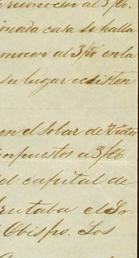 reconocer al 3 p%.
inada casa se halla
nocer al 3 p% en la
su lugar ecsisten
en el solar de Vista
impuestos a 3 p%
el capital de
frutaba el Sor
Obispo. Los